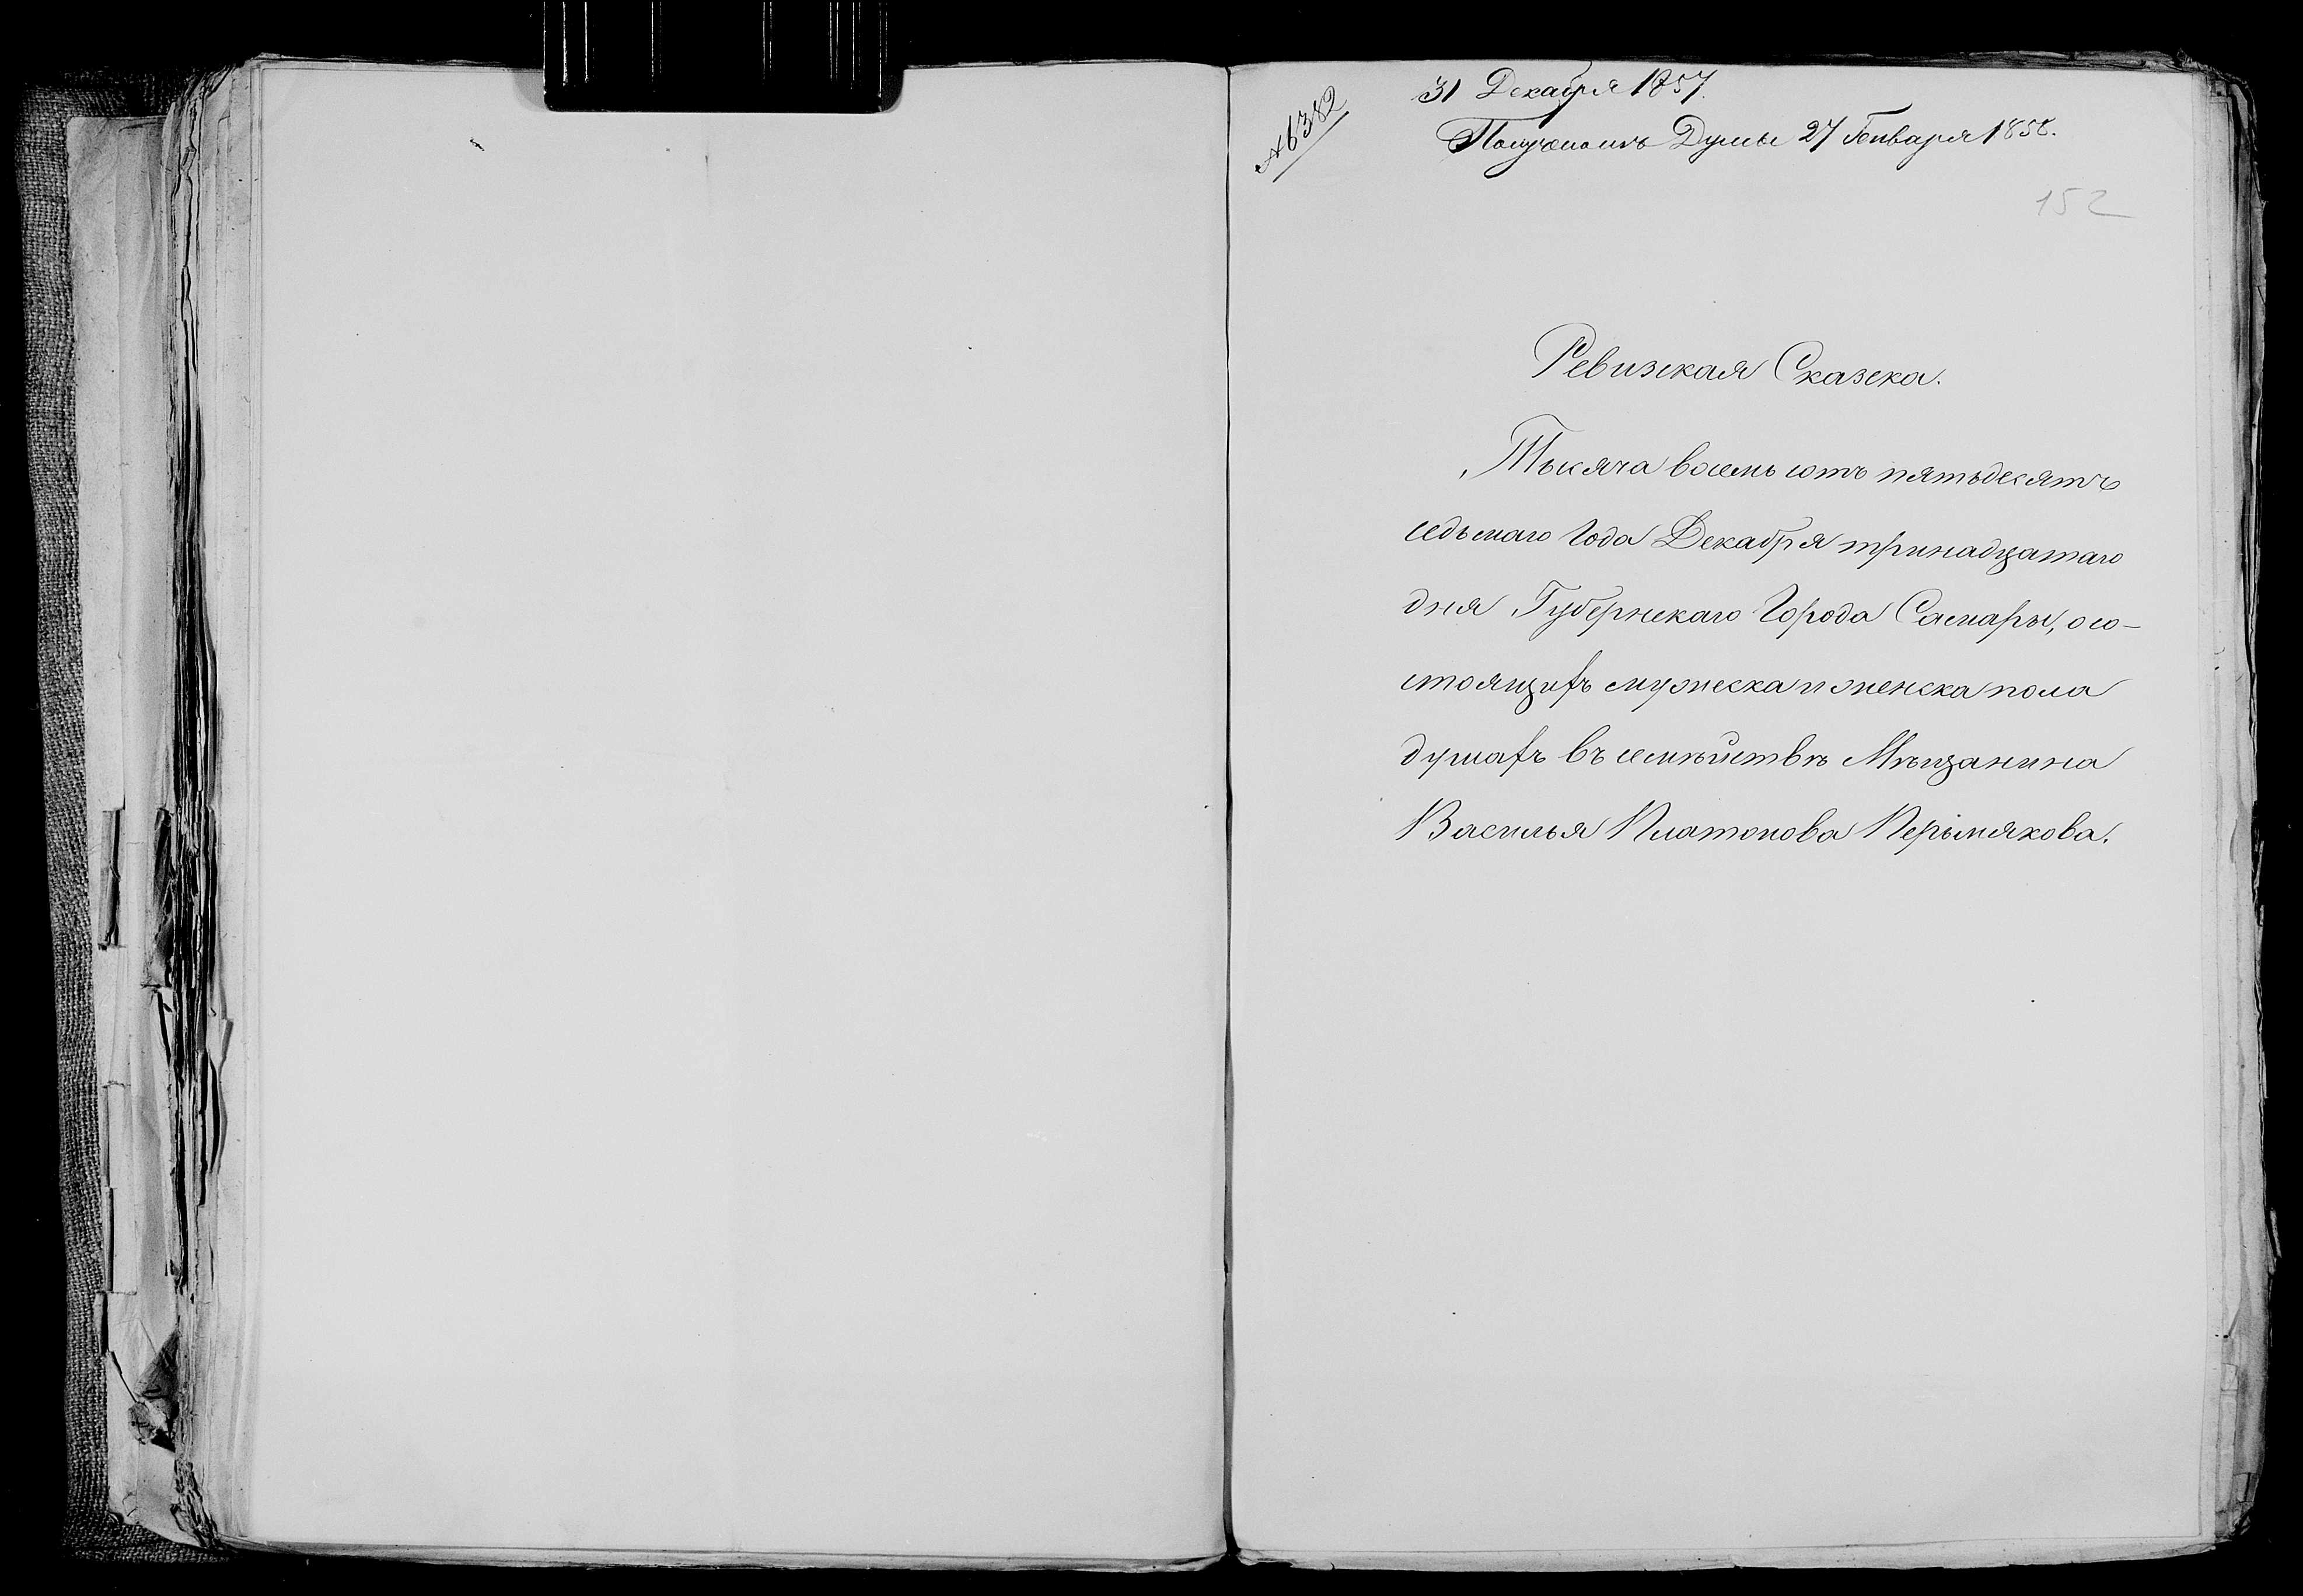 № 382
31 Декабря 1857.
Получено изъ Думы 27 Генваря 1858.
152
Ревизская Сказска.
Тысяча восемь сотъ пятьдесятъ
седьмаго Года Декабря тринадцатаго
дня Губернскаго Города Самары, о со-
стоящихъ мужеска и женска пола
душахъ въ семѣйствѣ Мѣщанина
Василья Платонова Пермякова.